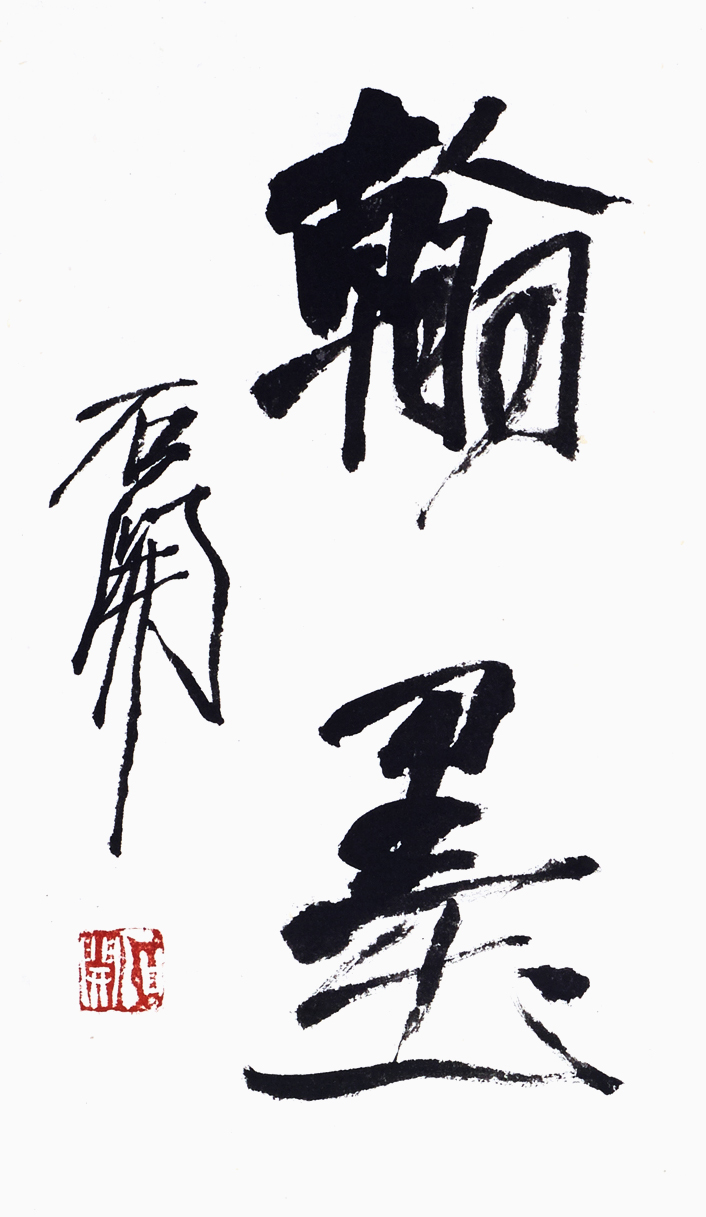 翰墨
石開
石開